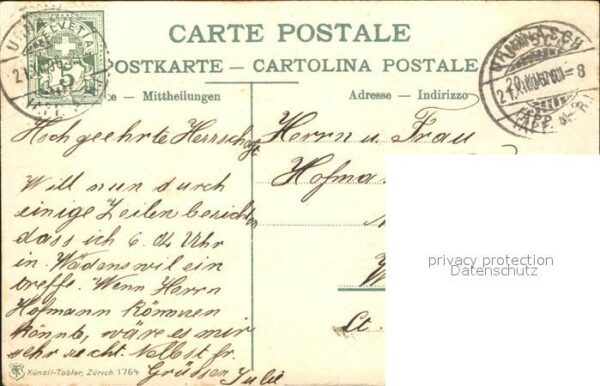 CARTE POSTALE
POSTKARTE – CARTOLINA POSTALE
- Mittheilungen
Adresse - Indirizzo
HELVETIA
5
URNÄSCH
(APP. A. R.)
Hochgeehrte Herrschaft
Will nun durch
einige Zeilen berichten
dass ich 6. Uhr
in Wädenswil ein
treffe. Wenn Herrn
Hofmann kömmen
könnte, wäre es mir
sehr recht. Nebst fr.
Grüssen Julie
Herrn u. Frau
Hofman
W
Ct.
privacy protection
Datenschutz
Künzli-Tobler, Zürich. 1764